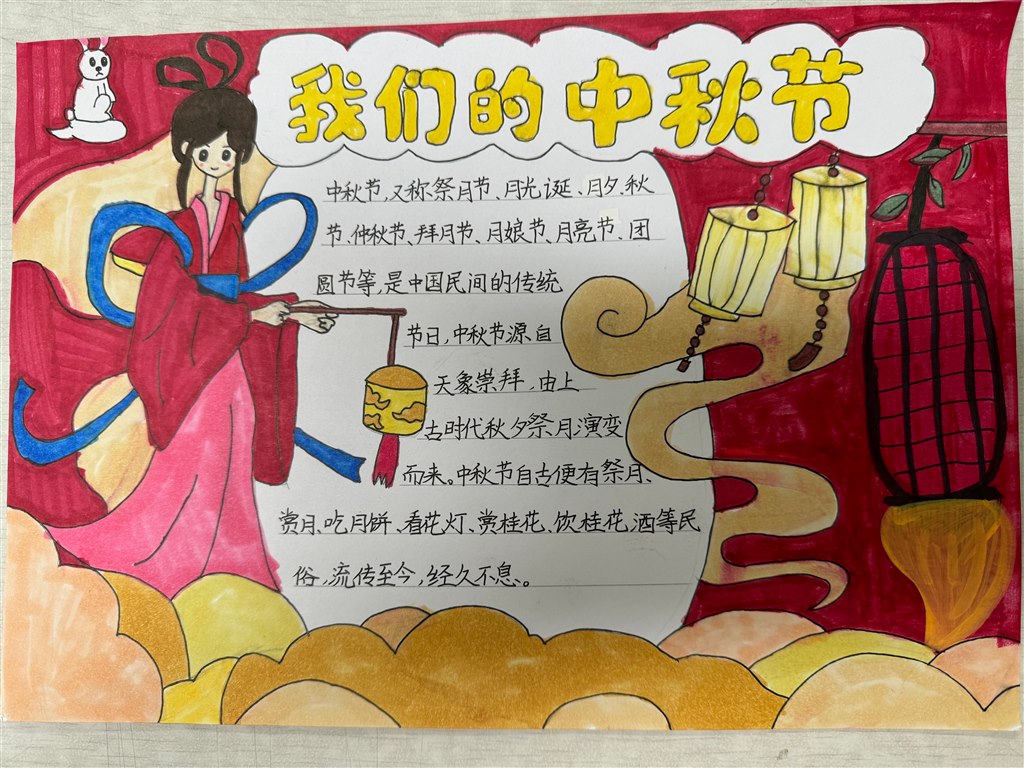 我们的中秋节
中秋节,又称祭月节、月光诞、月夕、秋
节、仲秋节、拜月节、月娘节、月亮节、团
圆节等,是中国民间的传统
节日,中秋节源自
天象崇拜,由上
古时代秋夕祭月演变
而来。中秋节自古便有祭月、
赏月、吃月饼、看花灯、赏桂花、饮桂花酒等民
俗,流传至今,经久不息。